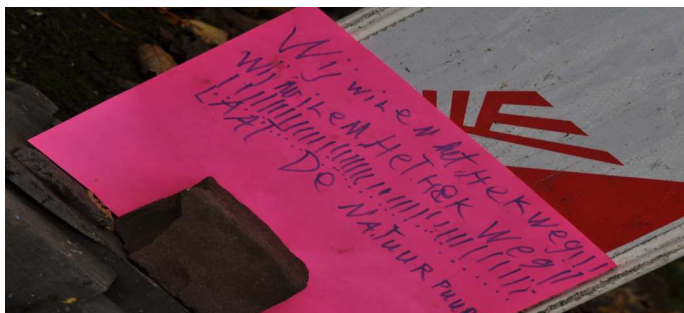 Wij wilen het Hek weg!!!
Wij wileM HeT HeK Weg!!
!!!!!!!!!!!!!!!!!!!!!!!!!!!!!!
LAAT De NATUUR PUUR